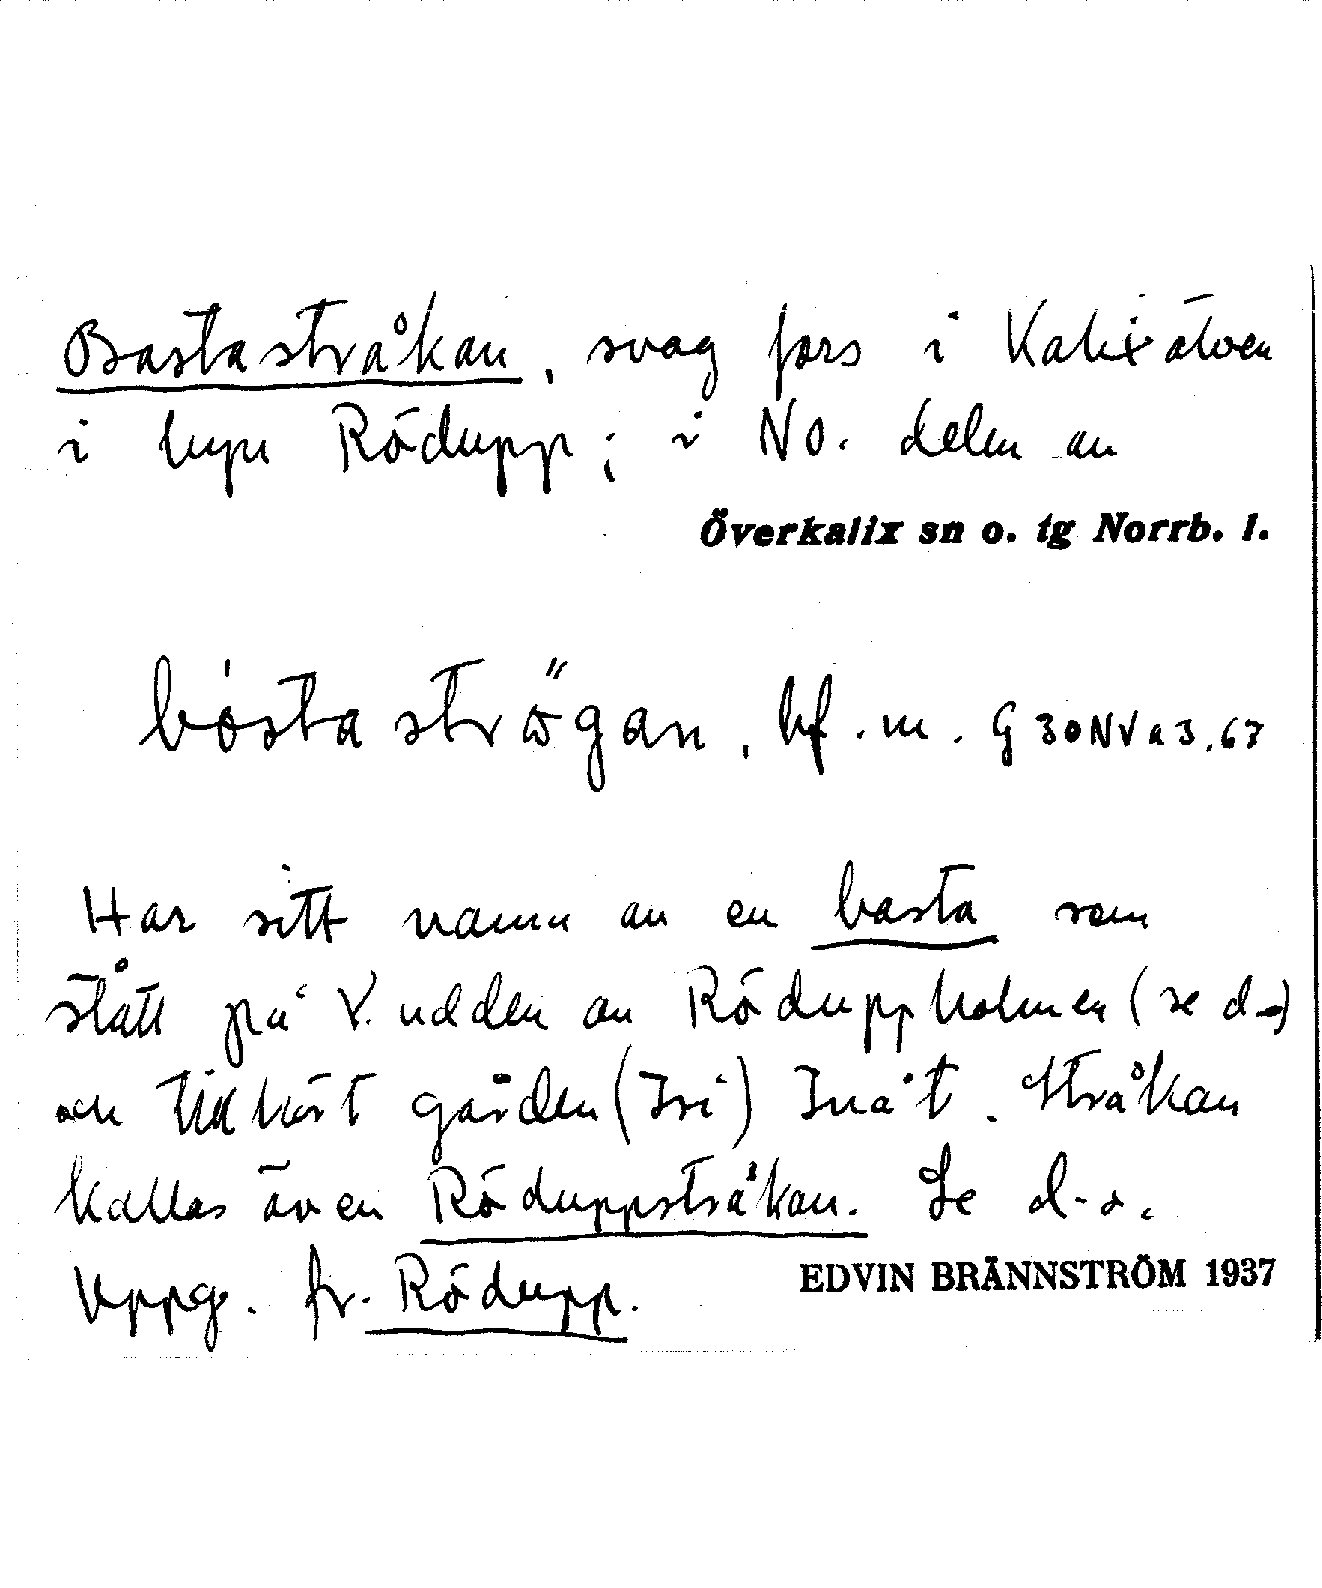 Bastastråkan, svag fors i Kalixälven
i byn Rödupp; i NO. delen av
Överkalix sn o. tg Norrb. l.
bo̍sta strö̋gan, bf. m. G 30 NV a 3.67
Har sitt namn av en basta som
stått på V. udden av Röduppholmen (se d-o)
och tillhört gården (Isi) Inåt. Stråkan
kallas även Röduppstråkan. Se d-o.
Uppg. fr. Rödupp.
EDVIN BRÄNNSTRÖM 1937